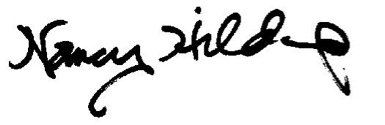 Nancy Hilding